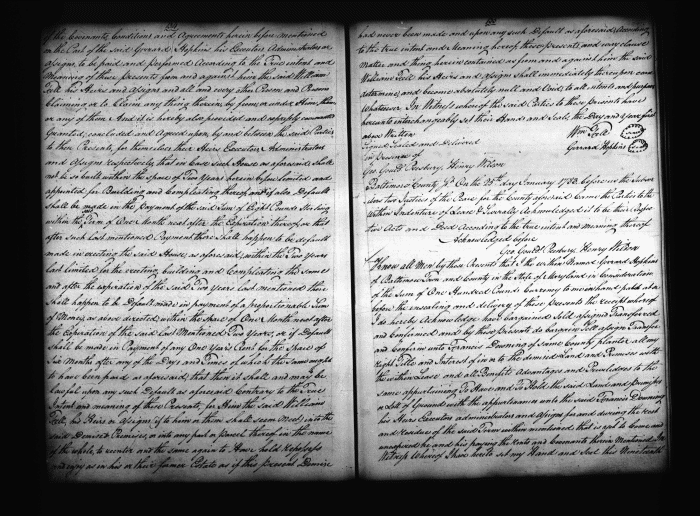 of the Covenants Conditions and Agreements herein before mentioned
on the Part of the said Gerrard Hopkins his Executors Administrators or
Assigns to be paid and performed According to the True intent and
Meaning of these presents from and against him the said William
Fell his Heirs and Assigns and all and every other Person and Persons
Claiming or to Claim any thing therein by from or under Him, them
or any of them And it is hereby also provided and expressly
Granted, concluded and Agreed upon by and between the said Parties
to these Presents, for themselves their Heirs Executors Administrators
and Assigns respectively, that in Case such House as aforesaid shall
not be so built within the space of Two Years herein before limited and
appointed for Building and Compleating thereof, and if also Default
Shall be made in the Payment of the said Sum of Eight Pounds Sterling
within the Term of One Month next after the Expiration thereof, or that
after such last mentioned Payment there shall happen to be default
made in erecting the said House, as aforesaid, within the Two Years
last limited for the erecting, building and Compleating the same
and after the expiration of the said Two Years last mentioned there
Shall happen to be Default made in payment of a proportionable Sum
of Money, as above directed, within the space of One Month next after
the Expiration of the said last Mentioned Two Years, or if Default
shall be made in Payment of any One Year's Rent for the Space of
Six Months after any of the Days and Times of which the same ought
to have been paid as aforesaid, that then it shall and may be
lawful upon any such Default as aforesaid Contrary to the True
Intent and meaning of these Presents, for Him the said William
Fell, his Heirs or Assigns, if to him or them shall seem Meet, into the
said Demised Premises, or into any part or parcel thereof in the name
of the whole, to reenter and the same again to Have hold Repossess
and enjoy as in his or their former Estate as if this present Demise
had never been made and upon any such Default as aforesaid According
to the true intent and Meaning hereof, these presents and every clause
Matter and thing herein contained as from and against him the said
William Fell his Heirs and Assigns shall immediately thereupon cease
determine, and become absolutely null and Void, to all intents and purposes
Whatsoever. In Witness whereof the said Parties to these presents have
hereunto interchangeably set their Hands and Seals, the Day and Year first
above Written
Wm Fell
Signed Sealed and Delivered
Gerrard Hopkins
In Presence of
Geo. Goud Presbury, Henry Wilson
Baltimore County On the 28th day January 1783 before us the Subscri
bers two Justices of the Peace for the County aforesaid Came the Parties to the
Within Indenture of Lease & Severally Acknowledged it to be their respec
tive Acts and Deed According to the true intent and meaning thereof
Acknowledged before
Geo. Goud Presbury, Henry Wilson
Know all Men by these Presents that I the within Named Gerrard Hopkins
of Baltimore Town and County in the State of Maryland in Consideration
of the Sum of One Hundred Pounds Currency to me in hand paid at or
before the ensealing and delivery of these Presents the receipt whereof
I do hereby Acknowledge have bargained Sold assigned Transferred
and Confirmed and by these presents do bargain Sell assign Transfer
and Confirm unto Francis Downing of same County planter all my
Right Title and Interest of in or to the demised Land and Premises with
the within Lease and all Benefits Advantages and Priviledges to the
same appertaining To Have and to Hold the said Land and Premises
or Lott of Ground with the appurtenances unto the said Francis Downing
his Heirs Executors administrators and Assigns for and during the Rest
and Residue of the said Term within mentioned that is yet to Come and
unexpired he and his paying the Rents and Covenants therein Mentioned In
Witness Whereof I have hereto set my Hand and Seal this Nineteenth